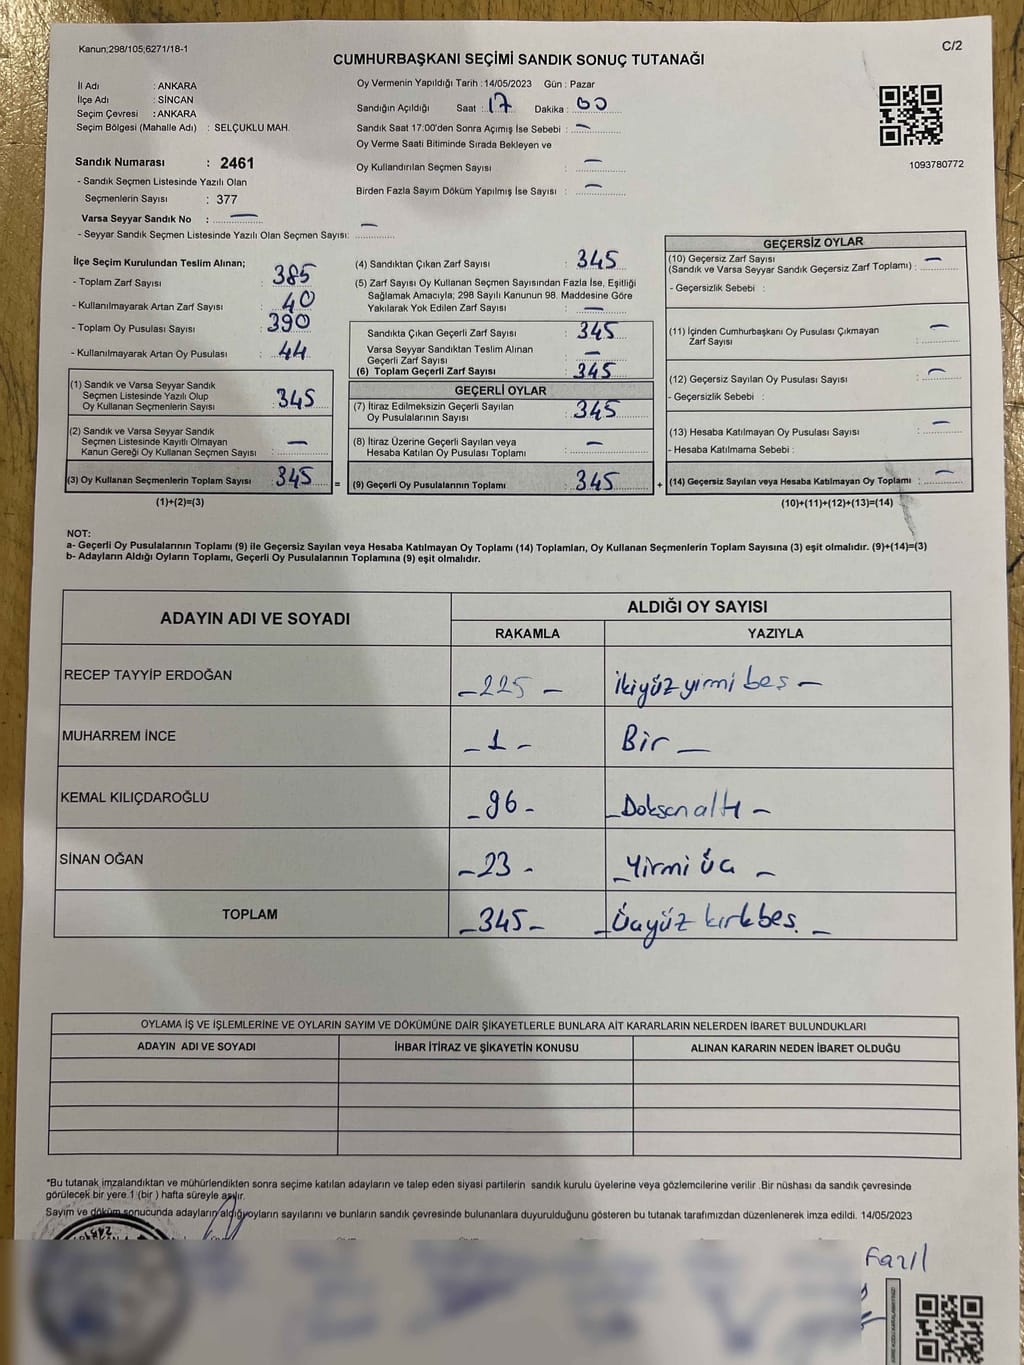 Kanun;298/105;6271/18-1
C/2
CUMHURBAŞKANI SEÇİMİ SANDIK SONUÇ TUTANAĞI
İl Adı : ANKARA
İlçe Adı : SİNCAN
Seçim Çevresi : ANKARA
Seçim Bölgesi (Mahalle Adı) : SELÇUKLU MAH.
Sandık Numarası : 2461
- Sandık Seçmen Listesinde Yazılı Olan
Seçmenlerin Sayısı : 377
Varsa Seyyar Sandık No : —
- Seyyar Sandık Seçmen Listesinde Yazılı Olan Seçmen Sayısı: —
Oy Vermenin Yapıldığı Tarih : 14/05/2023 Gün : Pazar
Sandığın Açıldığı Saat : 17 Dakika : 00
Sandık Saat 17:00'den Sonra Açımış İse Sebebi : —
Oy Verme Saati Bitiminde Sırada Bekleyen ve
Oy Kullandırılan Seçmen Sayısı : —
Birden Fazla Sayım Döküm Yapılmış İse Sayısı : —
1093780772
İlçe Seçim Kurulundan Teslim Alınan;
- Toplam Zarf Sayısı : 385
- Kullanılmayarak Artan Zarf Sayısı : 40
- Toplam Oy Pusulası Sayısı : 390
- Kullanılmayarak Artan Oy Pusulası : 44
(1) Sandık ve Varsa Seyyar Sandık
Seçmen Listesinde Yazılı Olup
Oy Kullanan Seçmenlerin Sayısı : 345
(2) Sandık ve Varsa Seyyar Sandık
Seçmen Listesinde Kayıtlı Olmayan
Kanun Gereği Oy Kullanan Seçmen Sayısı : —
(3) Oy Kullanan Seçmenlerin Toplam Sayısı : 345 =
(1)+(2)=(3)
(4) Sandıktan Çıkan Zarf Sayısı : 345
(5) Zarf Sayısı Oy Kullanan Seçmen Sayısından Fazla İse, Eşitliği
Sağlamak Amacıyla; 298 Sayılı Kanunun 98. Maddesine Göre
Yakılarak Yok Edilen Zarf Sayısı : —
Sandıkta Çıkan Geçerli Zarf Sayısı : 345
Varsa Seyyar Sandıktan Teslim Alınan
Geçerli Zarf Sayısı : —
(6) Toplam Geçerli Zarf Sayısı : 345
GEÇERLİ OYLAR
(7) İtiraz Edilmeksizin Geçerli Sayılan
Oy Pusulalarının Sayısı : 345
(8) İtiraz Üzerine Geçerli Sayılan veya
Hesaba Katılan Oy Pusulası Toplamı : —
(9) Geçerli Oy Pusulalarının Toplamı : 345 +
GEÇERSİZ OYLAR
(10) Geçersiz Zarf Sayısı
(Sandık ve Varsa Seyyar Sandık Geçersiz Zarf Toplamı) : —
- Geçersizlik Sebebi :
(11) İçinden Cumhurbaşkanı Oy Pusulası Çıkmayan
Zarf Sayısı : —
(12) Geçersiz Sayılan Oy Pusulası Sayısı : —
- Geçersizlik Sebebi :
(13) Hesaba Katılmayan Oy Pusulası Sayısı : —
- Hesaba Katılmama Sebebi :
(14) Geçersiz Sayılan veya Hesaba Katılmayan Oy Toplamı : —
(10)+(11)+(12)+(13)=(14)
NOT:
a- Geçerli Oy Pusulalarının Toplamı (9) ile Geçersiz Sayılan veya Hesaba Katılmayan Oy Toplamı (14) Toplamları, Oy Kullanan Seçmenlerin Toplam Sayısına (3) eşit olmalıdır. (9)+(14)=(3)
b- Adayların Aldığı Oyların Toplamı, Geçerli Oy Pusulalarının Toplamına (9) eşit olmalıdır.
ADAYIN ADI VE SOYADI ALDIĞI OY SAYISI
RAKAMLA YAZIYLA
RECEP TAYYİP ERDOĞAN – 225 – İkiyüz yirmi beş –
MUHARREM İNCE – 1 – Bir –
KEMAL KILIÇDAROĞLU – 96 – – Doksan altı –
SİNAN OĞAN – 23 – – Yirmi üç –
TOPLAM – 345 – – Üçyüz kırkbeş. –
OYLAMA İŞ VE İŞLEMLERİNE VE OYLARIN SAYIM VE DÖKÜMÜNE DAİR ŞİKAYETLERLE BUNLARA AİT KARARLARIN NELERDEN İBARET BULUNDUKLARI
ADAYIN ADI VE SOYADI İHBAR İTİRAZ VE ŞİKAYETİN KONUSU ALINAN KARARIN NEDEN İBARET OLDUĞU
*Bu tutanak imzalandıktan ve mühürlendikten sonra seçime katılan adayların ve talep eden siyasi partilerin sandık kurulu üyelerine veya gözlemcilerine verilir .Bir nüshası da sandık çevresinde
görülecek bir yere 1 (bir ) hafta süreyle asılır.
Sayım ve döküm sonucunda adayların aldığı oyların sayılarını ve bunların sandık çevresinde bulunanlara duyurulduğunu gösteren bu tutanak tarafımızdan düzenlenerek imza edildi. 14/05/2023
Fazıl